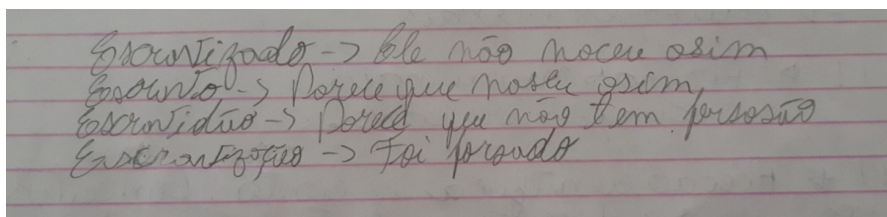 Escravizado -> Ele não naceu asim
Escravo -> Parece que naseu asim
Escravidão -> Parece que não tem persosão
Escravização -> Foi forsado